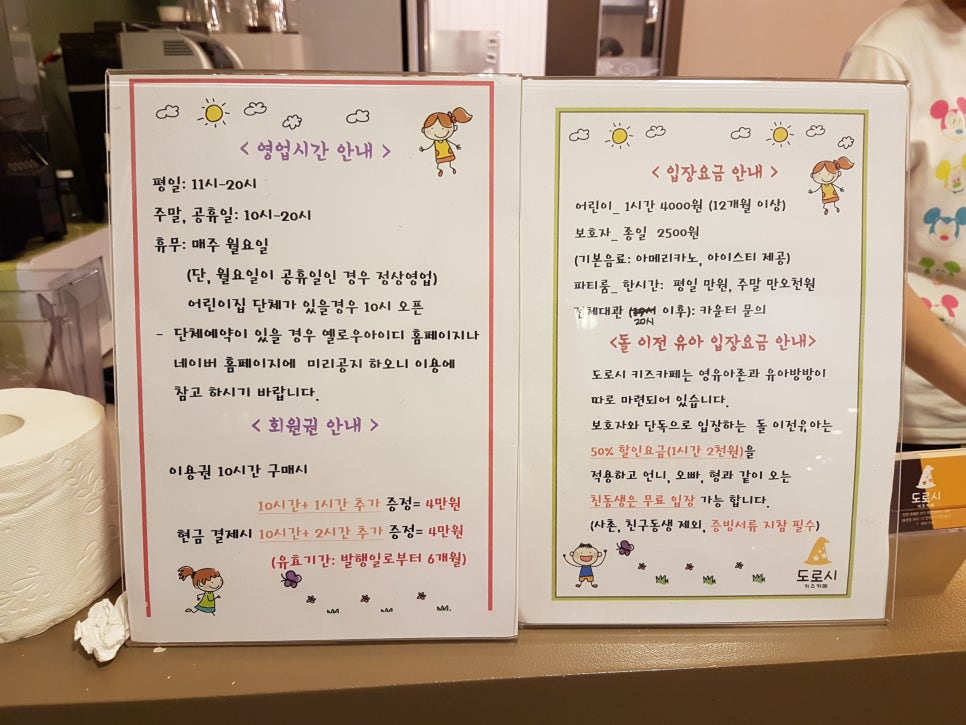 < 영업시간 안내 >
평일: 11시-20시
주말, 공휴일: 10시-20시
휴무: 매주 월요일
(단, 월요일이 공휴일인 경우 정상영업)
어린이집 단체가 있을경우 10시 오픈
- 단체예약이 있을 경우 옐로우아이디 홈페이지나
네이버 홈페이지에 미리공지 하오니 이용에
참고 하시기 바랍니다.
< 회원권 안내 >
이용권 10시간 구매시
10시간+ 1시간 추가 증정= 4만원
현금 결제시 10시간+ 2시간 추가 증정= 4만원
(유효기간: 발행일로부터 6개월)
< 입장요금 안내 >
어린이_ 1시간 4000원 (12개월 이상)
보호자_ 종일 2500원
(기본음료: 아메리카노, 아이스티 제공)
파티룸_ 한시간: 평일 만원, 주말 만오천원
전체대관 (19시 이후): 카운터 문의
20시
<돌 이전 유아 입장요금 안내>
도로시 키즈카페는 영유아존과 유아방방이
따로 마련되어 있습니다.
보호자와 단독으로 입장하는 돌 이전유아는
50% 할인요금(1시간 2천원)을
적용하고 언니, 오빠, 형과 같이 오는
친동생은 무료 입장 가능 합니다.
(사촌, 친구동생 제외, 증빙서류 지참 필수)
도로시
키즈카페
도로시